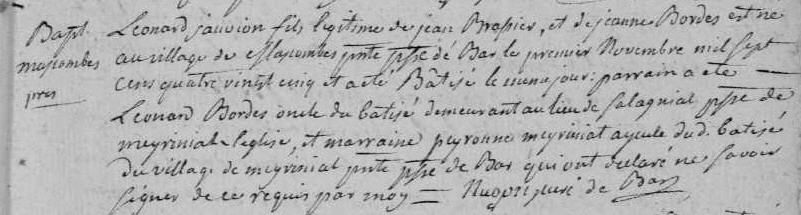 Bapt.
mascombes
pres
Leonard jauvion fils legitime de jean Brossier, et de jeanne Bordes est né
au village de Mascombes pnte psse de Bar le premier Novembre mil sept
cens quatre vingt cinq et a été Bâtisé le meme jour: parrain a eté
Leonard Bordes oncle du batisé demeurant au lieu de Salagnial psse de
meyriniat leglise, et marraine peyronne meyriniat ayeule du d. batisé
du village de meyriniat pnte psse de Bar qui ont declaré ne savoir
signer de ce requis par moy = curé de Bar